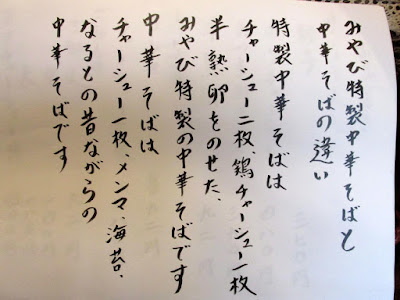 みやび特製中華そばと
中華そばの違い
特製中華そばは
チャーシュー二枚、鶏チャーシュー一枚
半熟卵をのせた、
みやび特製の中華そばです
中華そばは
チャーシュー一枚、メンマ、海苔、
なるとの昔ながらの
中華そばです